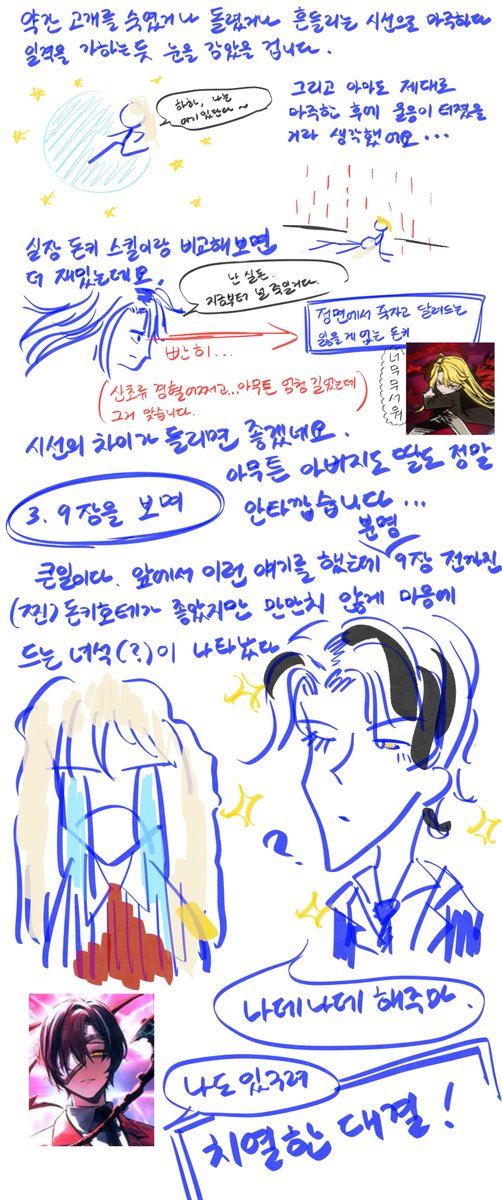 약간 고개를 숙였거나 돌렸거나 흔들리는 시선으로 마주하다
일격을 가하는 듯 눈을 감았을 겁니다.
하하, 나는
여기 있단다~
그리고 아마도 제대로
마주한 후에 울음이 터졌을
거라 생각했어요...
실장 돈키 스킬이랑 비교해보면
더 재밌는데요!
난 실돈.
지금부터 널 죽일거다.
빤히...
정면에서 죽자고 달려드는
잃을 게 없는 돈키
너무무서워
(산초류 경혈 어쩌고...아무튼 엄청 길었는데
그거 맞습니다.)
시선의 차이가 들리면 좋겠네요.
아무튼 아버지도 딸도 정말
안타깝습니다...
3. 9장을 보며
큰일이다. 앞에서 이런 얘기를 했는데 분명 9장 전까진
(찐) 돈키호테가 좋았지만 만만치 않게 마음에
드는 녀석(?)이 나타났다
나데나데 해주마.
나도 있구려
치열한 대결!